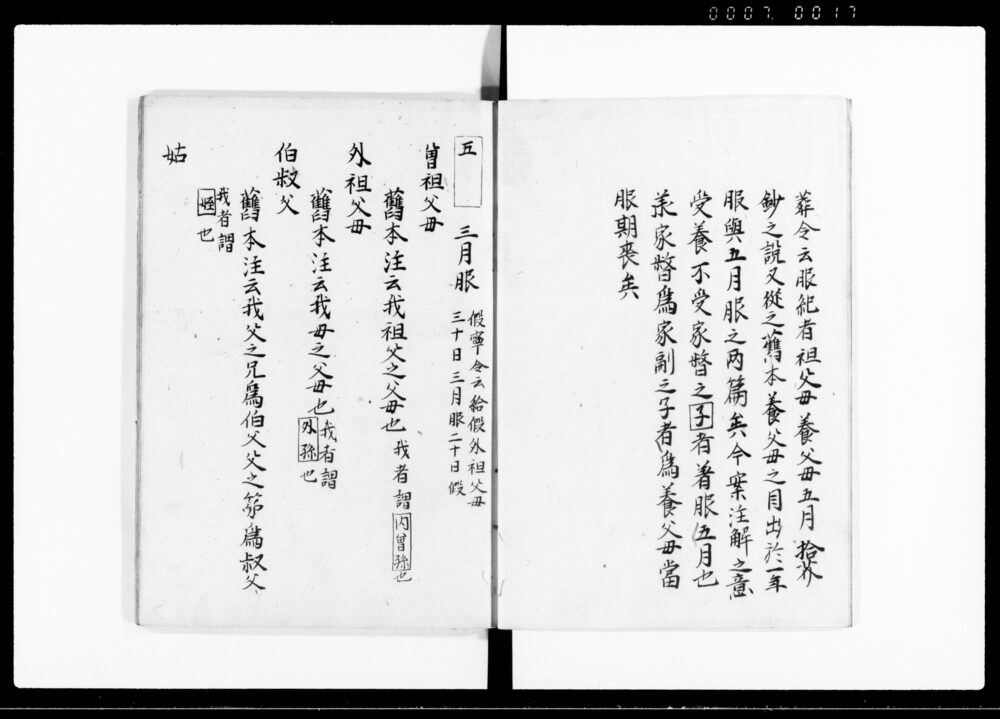 0007.0017
葬令云服紀者祖父母養父母五月拾芥
鈔之説又從之舊本養父母之目出於一年
服與五月服之両篇矣今案注解之意
受養不受家督之子者着服五月也
承家督爲家副之子者爲養父母當
服期喪矣
五 三月服
假寧令云給假外祖父母
三十日三月服二十日假
曽祖父母
舊本注云我祖父之父母也 我者謂内曽孫也
外祖父母
舊本注云我母之父母也 我者謂
外孫也
伯叔父
舊本注云我父之兄爲伯父父之弟爲叔父
我者謂
姪也
姑